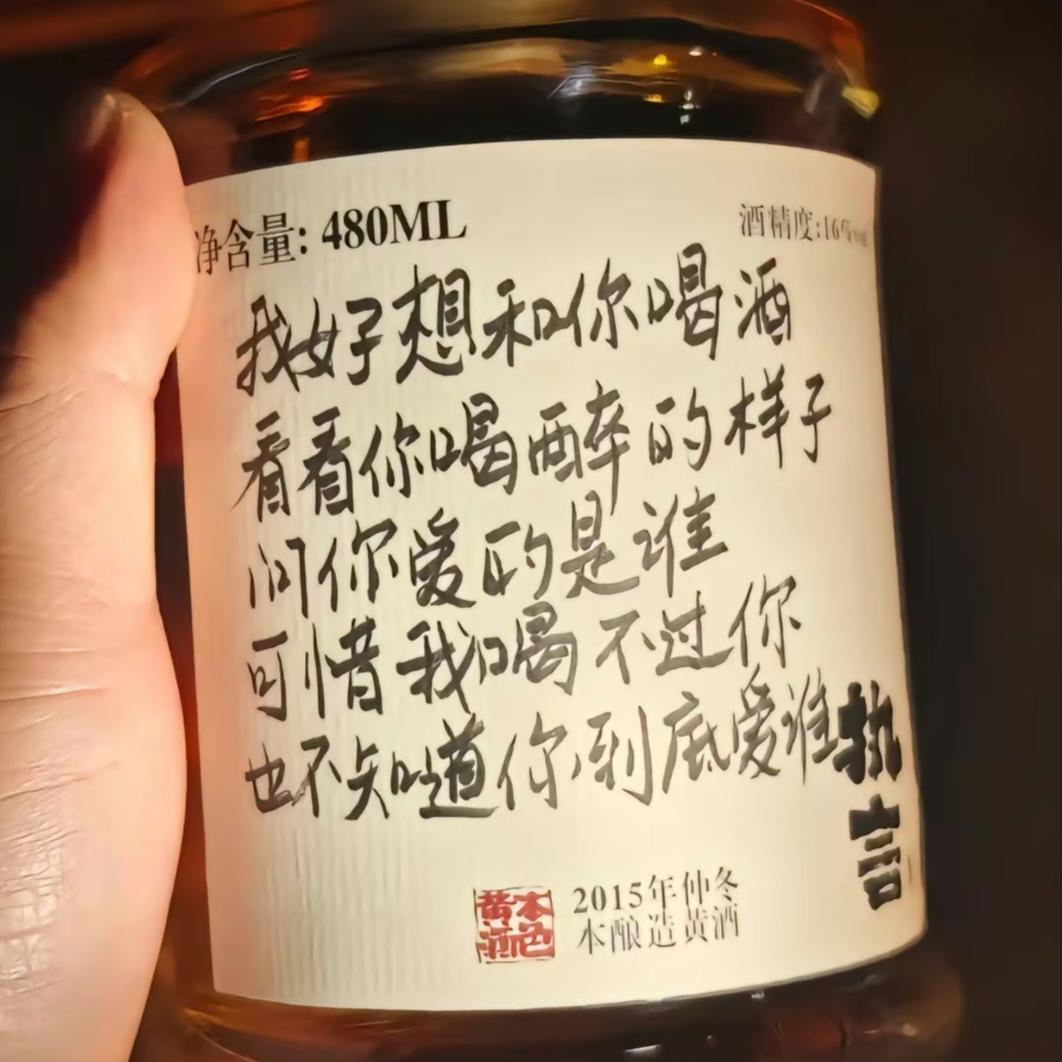 净含量: 480ML
酒精度:16%
我好想和你喝酒
看看你喝醉的样子
问你爱的是谁
可惜我喝不过你
也不知道你到底爱谁
执言
本色黄酒
2015年仲冬
本酿造黄酒